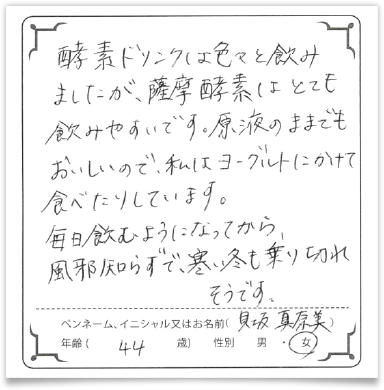 酵素ドリンクは色々と飲み
ましたが、薩摩酵素はとても
飲みやすいです。原液のままでも
おいしいので、私はヨーグルトにかけて
食べたりしています。
毎日飲むようになってから、
風邪知らずで、寒い冬も乗り切れ
そうです。
ペンネーム、イニシャル又はお名前(貝坂 真奈美)
年齢( 44 歳) 性別 男・女